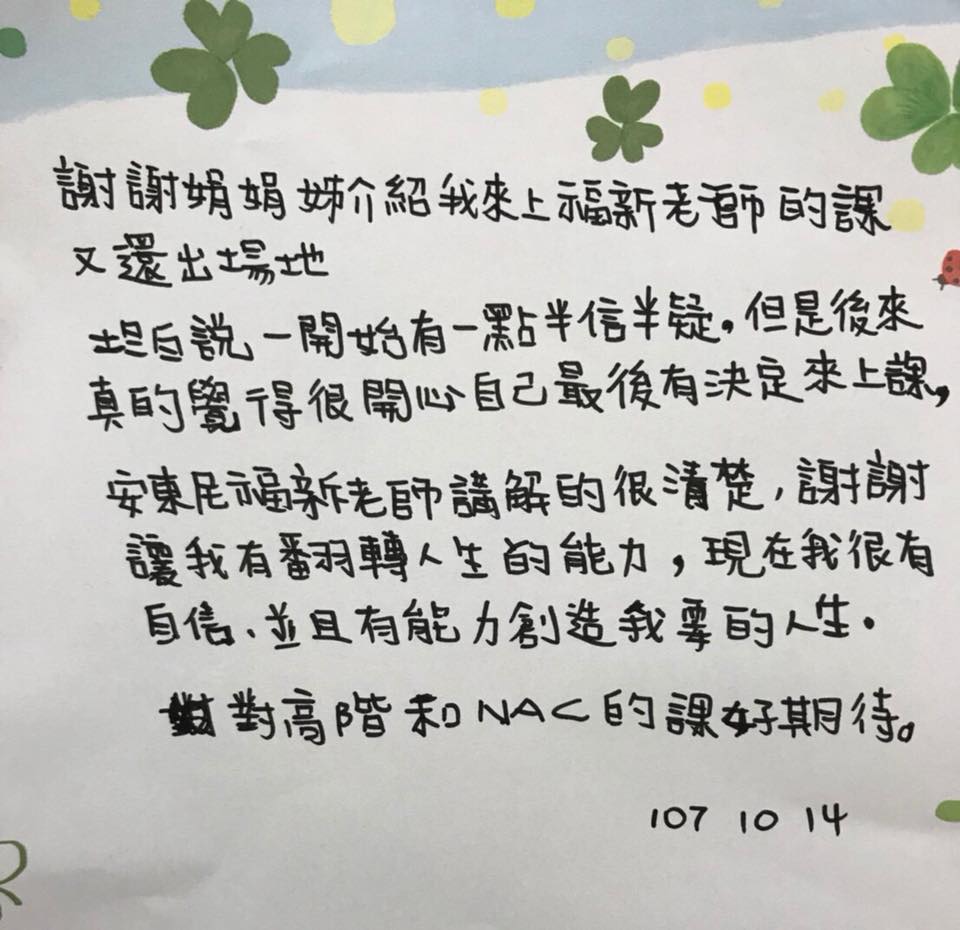 謝謝娟娟姊介紹我來上福新老師的課
又還出場地
坦白說一開始有一點半信半疑。但是後來
真的覺得很開心自己最後有決定來上課，
安東尼福新老師講解的很清楚，謝謝
讓我有翻轉人生的能力，現在我很有
自信、並且有能力創造我要的人生。
對高階和NAC的課好期待。
107 10 14